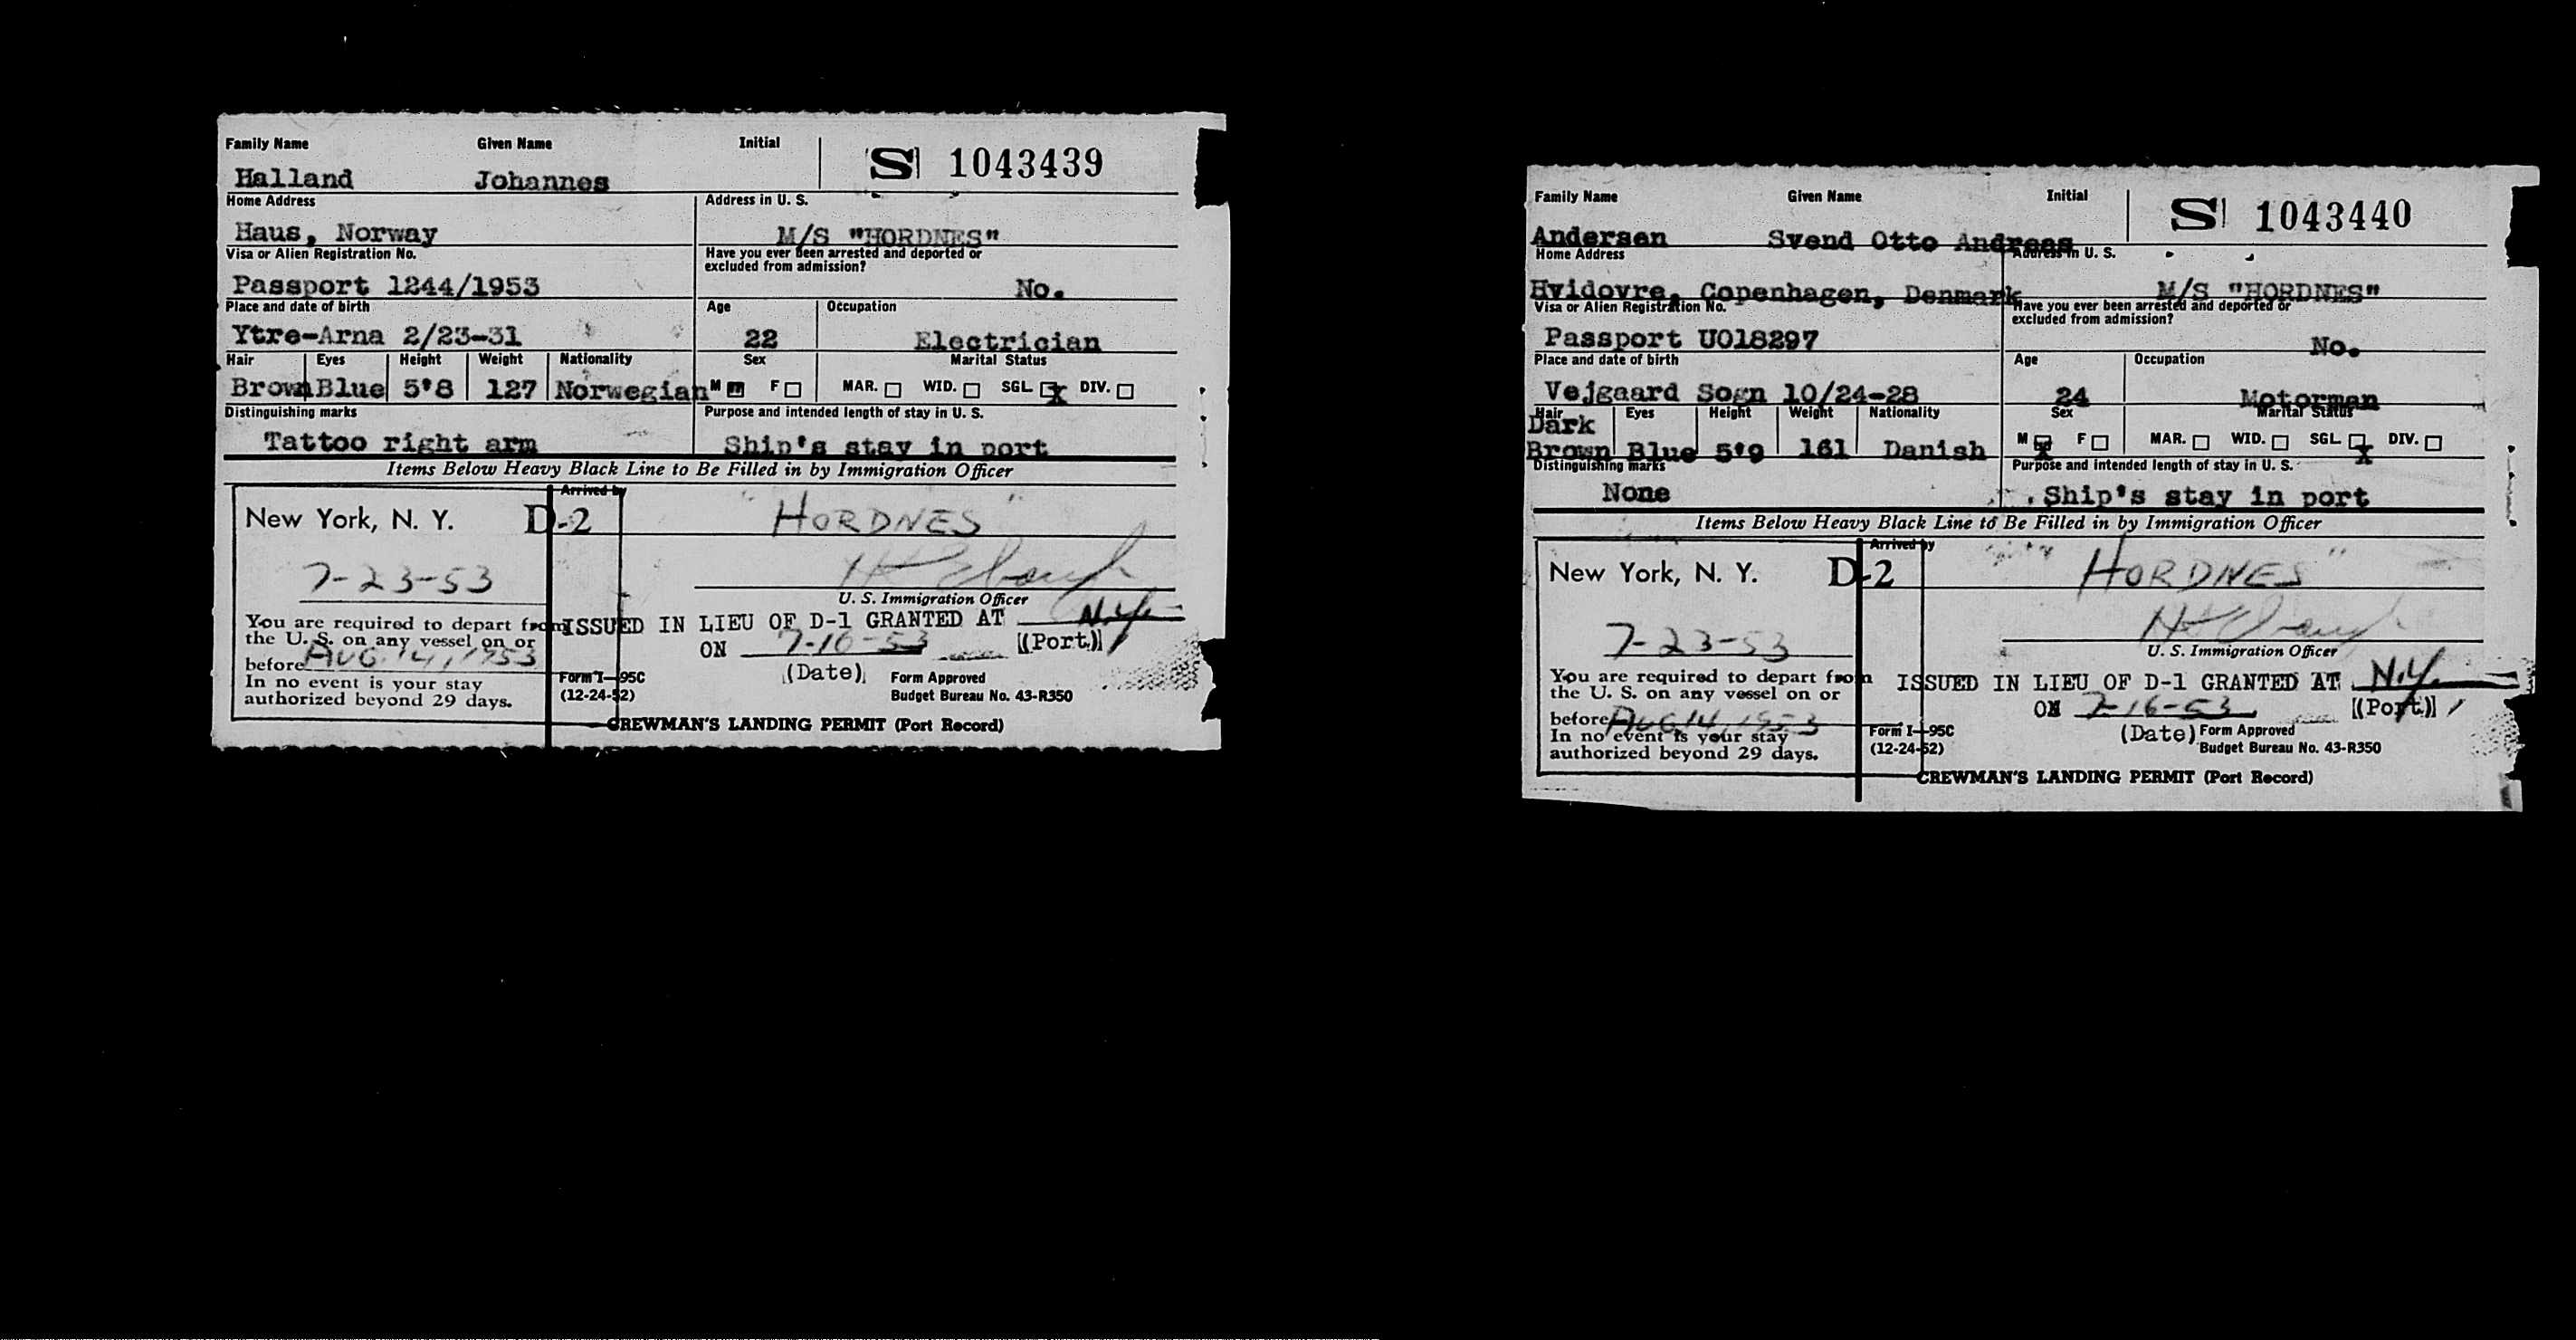 Family Name Given Name Initial
S 1043439
Halland Johannes
Home Address Address in U. S.
Haus, Norway M/S "HORDNES"
Visa or Alien Registration No. Have you ever been arrested and deported or
excluded from admission?
Passport 1244/1953 No.
Place and date of birth Age Occupation
Ytre-Arna 2/23-31 22 Electrician
Hair Eyes Height Weight Nationality Sex Marital Status
Brown Blue 5'8 127 Norwegian M F MAR. WID. SGL. X DIV.
Distinguishing marks Purpose and intended length of stay in U. S.
Tattoo right arm Ship's stay in port
Items Below Heavy Black Line to Be Filled in by Immigration Officer
Arrived by
New York, N. Y. D-2 "HORDNES"
7-23-53
U. S. Immigration Officer
You are required to depart from ISSUED IN LIEU OF D-1 GRANTED AT N.Y.
the U. S. on any vessel on or
before AUG. 14, 1953 ON 7-16-53 (Port)
In no event is your stay Form I-95C (Date) Form Approved
authorized beyond 29 days. (12-24-52) Budget Bureau No. 43-R350
CREWMAN'S LANDING PERMIT (Port Record)
Family Name Given Name Initial
S 1043440
Andersen Svend Otto Andreas
Home Address Address in U. S.
Hvidovre, Copenhagen, Denmark M/S "HORDNES"
Visa or Alien Registration No. Have you ever been arrested and deported or
excluded from admission?
Passport U018297 No.
Place and date of birth Age Occupation
Vejgaard Sogn 10/24-28 24 Motorman
Hair Eyes Height Weight Nationality Sex Marital Status
Dark
Brown Blue 5'9 161 Danish M X F MAR. WID. SGL. X DIV.
Distinguishing marks Purpose and intended length of stay in U. S.
None Ship's stay in port
Items Below Heavy Black Line to Be Filled in by Immigration Officer
Arrived by
New York, N. Y. D-2 "HORDNES"
7-23-53
U. S. Immigration Officer
You are required to depart from ISSUED IN LIEU OF D-1 GRANTED AT N.Y.
the U. S. on any vessel on or
before AUG 14, 1953 ON 7-16-53 (Port)
In no event is your stay Form I-95C (Date) Form Approved
authorized beyond 29 days. (12-24-52) Budget Bureau No. 43-R350
CREWMAN'S LANDING PERMIT (Port Record)